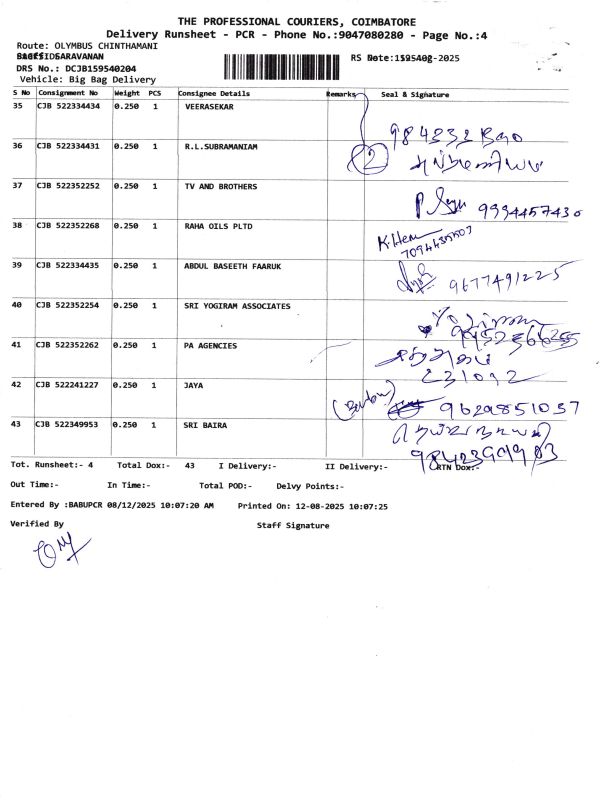 THE PROFESSIONAL COURIERS, COIMBATORE
Delivery Runsheet - PCR - Phone No.:9047080280 - Page No.:4
Route: OLYMBUS CHINTHAMANI
SARAVANAN
DRS No.: DCJB159540204
Vehicle: Big Bag Delivery
S No Consignment No Weight PCS Consignee Details Remarks Seal & Signature
35 CJB 522334434 0.250 1 VEERASEKAR
36 CJB 522334431 0.250 1 R.L.SUBRAMANIAM 2
37 CJB 522352252 0.250 1 TV AND BROTHERS 9994457430
38 CJB 522352268 0.250 1 RAHA OILS PLTD K.Hem
39 CJB 522334435 0.250 1 ABDUL BASEETH FAARUK 9677491225
40 CJB 522352254 0.250 1 SRI YOGIRAM ASSOCIATES
41 CJB 522352262 0.250 1 PA AGENCIES 231092
42 CJB 522241227 0.250 1 JAYA 9629851037
43 CJB 522349953 0.250 1 SRI BAIRA
Tot. Runsheet:- 4 Total Dox:- 43 I Delivery:- II Delivery:- RTN Dox:-
Out Time:- In Time:- Total POD:- Delvy Points:-
Entered By :BABUPCR 08/12/2025 10:07:20 AM Printed On: 12-08-2025 10:07:25
Verified By Staff Signature